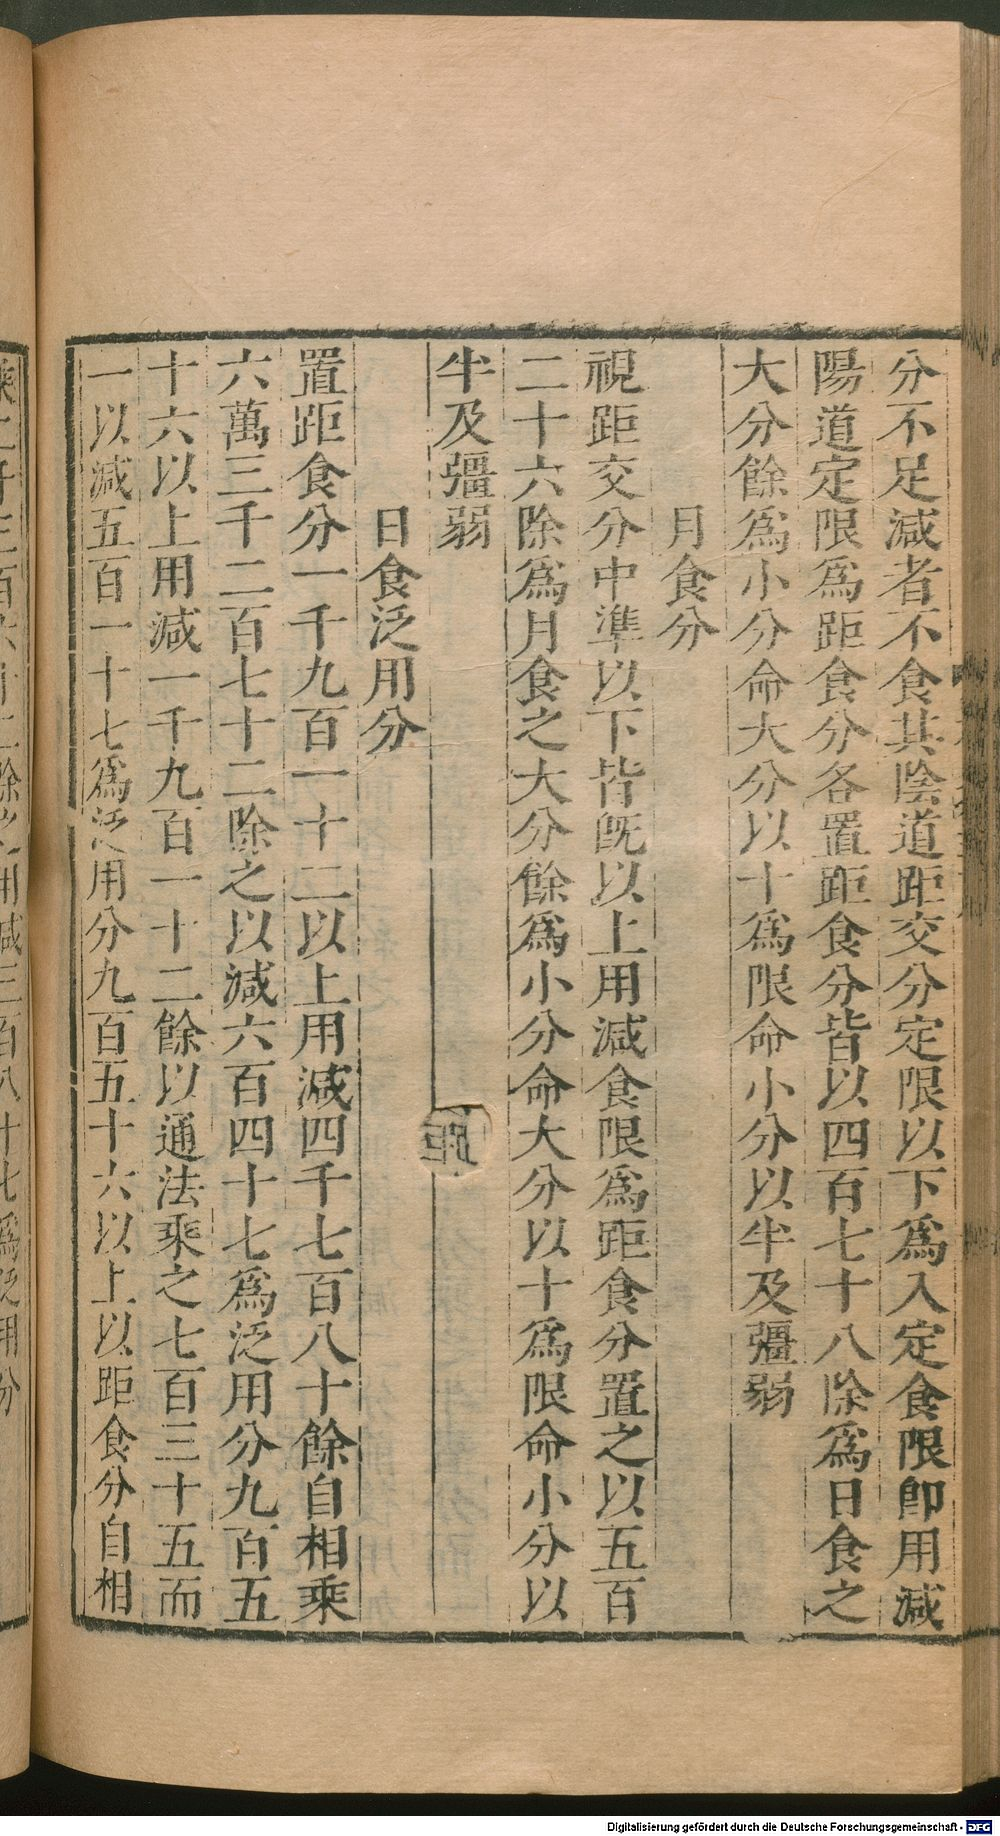 分不足減者不食其陰道距交分定限以下爲入定食限即用減
陽道定限爲距食分各置距食分皆以四百七十八除爲日食之
大分餘爲小分命大分以十爲限命小分以半及彊弱
月食分
視距交分中準以下皆旣以上用減食限爲距食分置之以五百
二十六除爲月食之大分餘爲小分命大分以十爲限命小分以
半及彊弱
日食泛用分
置距食分一千九百一十二以上用減四千七百八十餘自相乘
六萬三千二百七十二除之以減六百四十七爲泛用分九百五
十六以上用減一千九百一十二餘以通法乘之七百三十五而
一以減五百一十七爲泛用分九百五十六以上以距食分自相
Digitalisierung gefördert durch die Deutsche Forschungsgemeinschaft - DFG